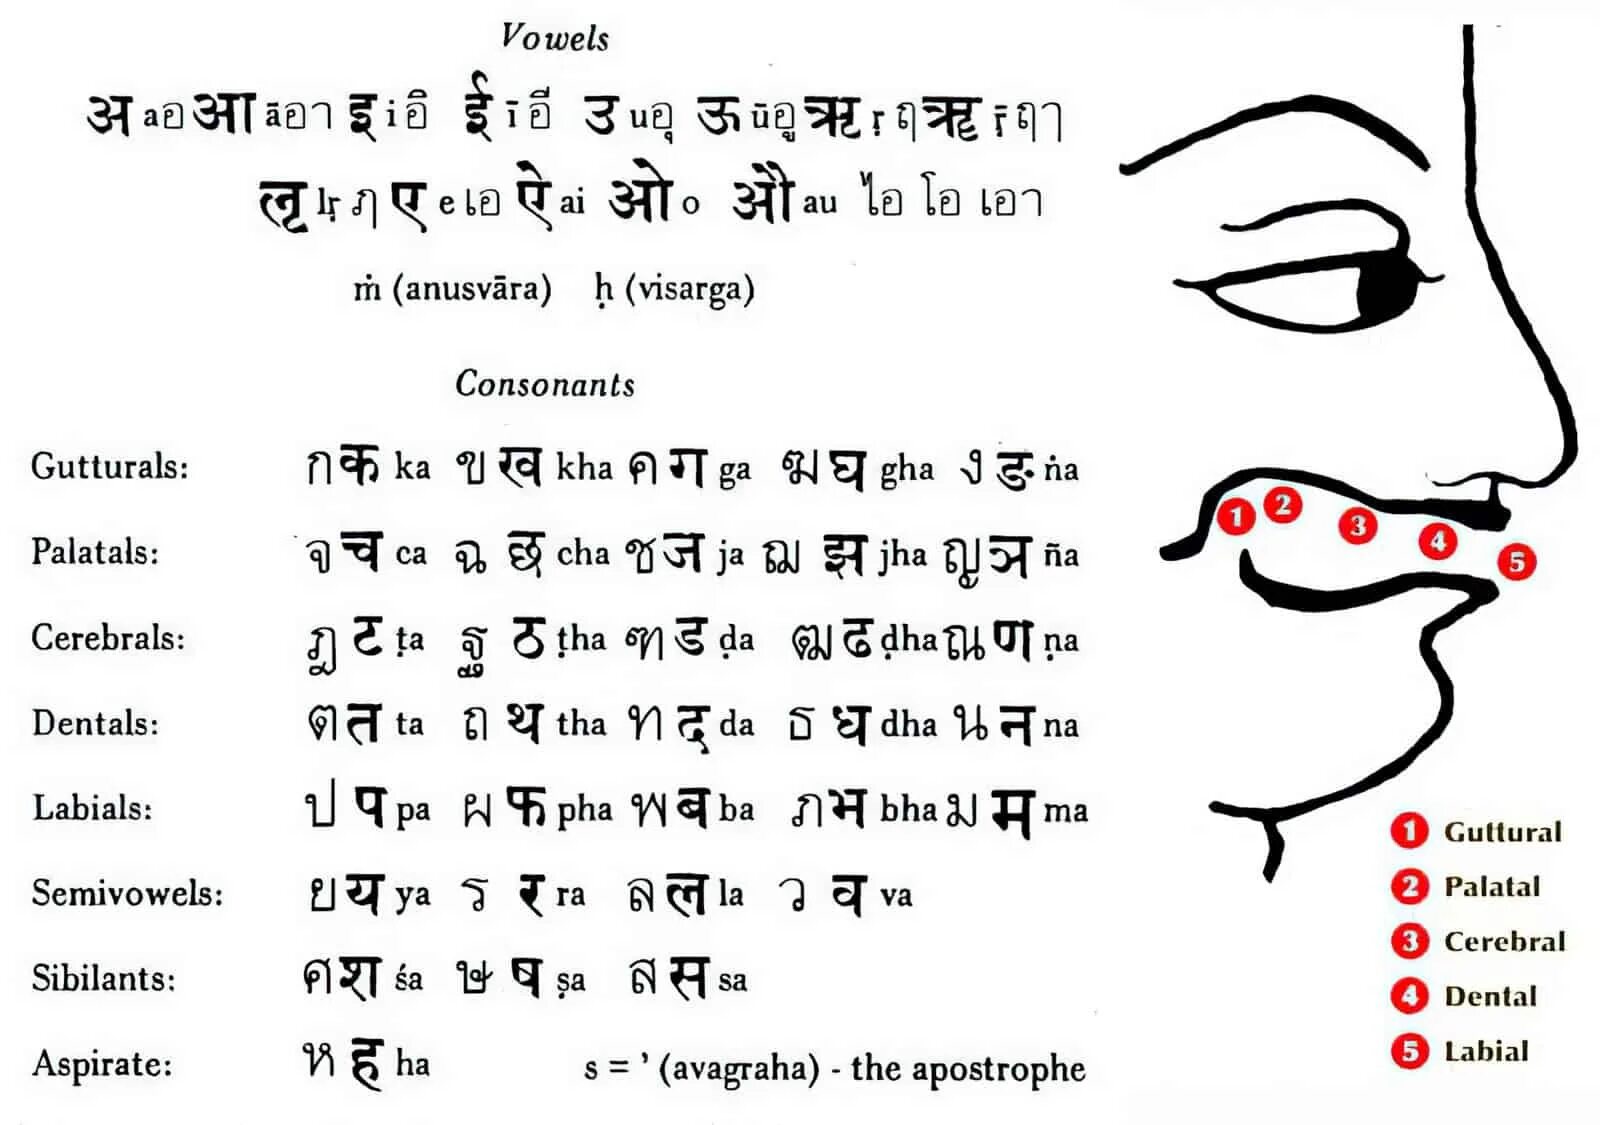 Vowels
अ a อ आ ā อา इ i อิ ई ī อี उ u อุ ऊ ū อู ऋ ṛ ฤ ॠ ṝ ฤา
ऌ lṛ ภ ए e เอ ऐ ai ओ o औ au ไอ โอ เอา
ṁ (anusvāra) ḥ (visarga)
Consonants
Gutturals: ก क ka ข ख kha ค ग ga ฆ घ gha ง ङ ṅa
Palatals: จ च ca ฉ छ cha ช ज ja ฌ झ jha ญ ञ ña
Cerebrals: ฏ ट ṭa ฐ ठ ṭha ฑ ड ḍa ฒ ढ ḍha ณ ण ṇa
Dentals: ต त ta ถ थ tha ท द da ธ ध dha น न na
Labials: ป प pa ผ फ pha พ ब ba ภ भ bha ม म ma
Semivowels: ย य ya ร र ra ล ल la ว व va
Sibilants: ศ श śa ษ ष ṣa ส स sa
Aspirate: ห ह ha s = ’ (avagraha) - the apostrophe
1 2 3 4 5
1 Guttural
2 Palatal
3 Cerebral
4 Dental
5 Labial